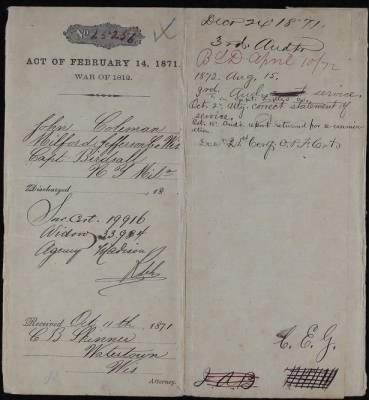 No 25256
ACT OF FEBRUARY 14, 1871.
WAR OF 1812.
John Coleman
Milford Jefferson Co Wis
Capt Birdsall
N Y Mil
Discharged, 18
Inv. Cert. 19916
Widow
Agency Madison
Received Oct 11th, 1871
C B Skinner
Watertown
Wis
Attorney.
Decr 24 1871.
3rd Audtr
B L D April 10/72
1872. Aug. 15.
3rd. Audr service
Oct. 2. Atty. correct statement of
service.
Oct. 15. Aud's report returned for
C. E. G.
J A B